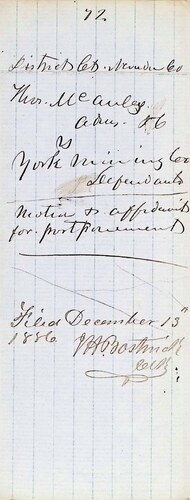 72
District Ct. Nevada Co
Thos. McAuley
Adm. &c
vs
York Mining Co
Defendants
Motion & affidavit
for postponement
Filed December 13th
1856
Clk